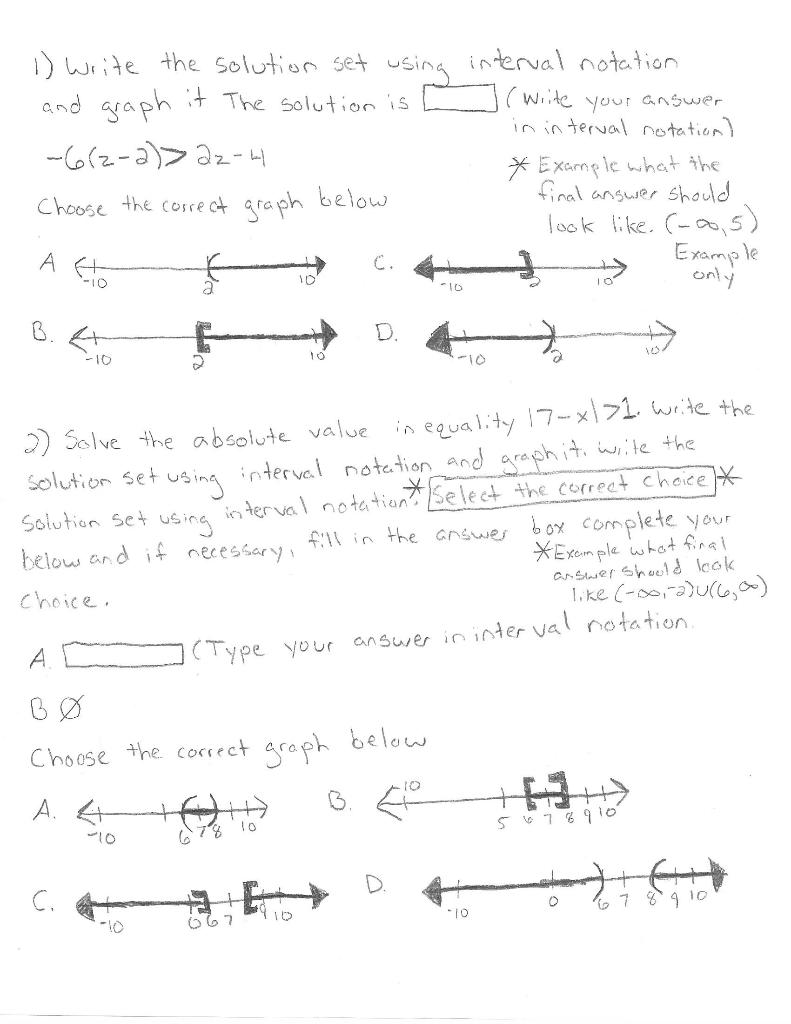 1) Write the solution set using interval notation
and graph it The solution is (Write your answer
in interval notation)
-6(z-2)>2z-4
* Example what the
final answer should
look like. (-∞,5)
Example
only
Choose the correct graph below
A -10 2 10
C. -10 2 10
B. -10 2 10
D. -10 2 10
2) Solve the absolute value inequality |7-x|>1. Write the
solution set using interval notation and graph it. Write the
solution set using interval notation. * Select the correct choice *
below and if necessary, fill in the answer box complete your
choice.
* Example what final
answer should look
like (-∞,-2)∪(6,∞)
A. (Type your answer in interval notation.
B Ø
Choose the correct graph below
A. -10 6 7 8 10
B. -10 5 6 7 8 9 10
C. -10 0 6 7 9 10
D. -10 0 6 7 8 9 10